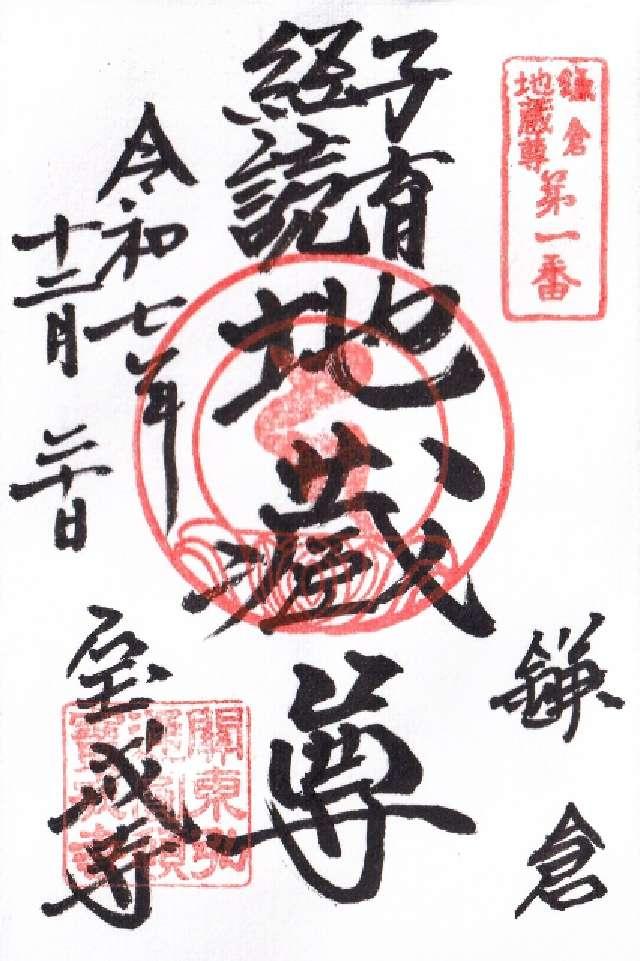 鎌倉
地蔵尊
第一番
鎌倉
子育
経読
地蔵尊
令和七年
十二月二十日
宝戒寺